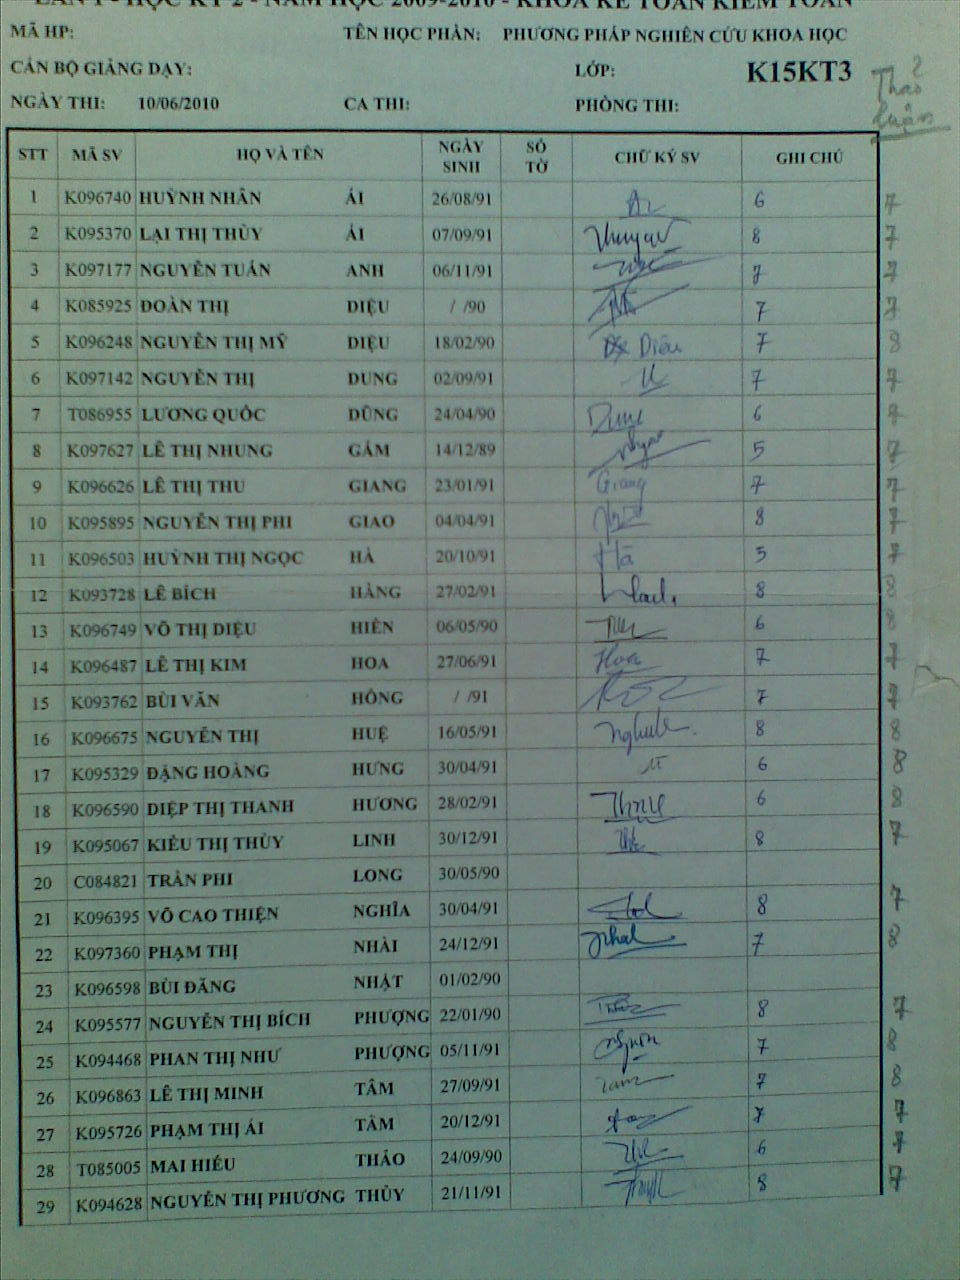 LẦN 1 - HỌC KỲ 2 - NĂM HỌC 2009-2010 - KHOA KẾ TOÁN KIỂM TOÁN
MÃ HP: TÊN HỌC PHẦN: PHƯƠNG PHÁP NGHIÊN CỨU KHOA HỌC
CÁN BỘ GIẢNG DẠY: LỚP: K15KT3
NGÀY THI: 10/06/2010 CA THI: PHÒNG THI:
Thảo
luận
STT MÃ SV HỌ VÀ TÊN NGÀY SINH SỐ TỜ CHỮ KÝ SV GHI CHÚ
1 K096740 HUỲNH NHÂN ÁI 26/08/91 6 7
2 K095370 LẠI THỊ THÙY ÁI 07/09/91 8 7
3 K097177 NGUYỄN TUẤN ANH 06/11/91 7 7
4 K085925 ĐOÀN THỊ DIỆU / /90 7 7
5 K096248 NGUYỄN THỊ MỸ DIỆU 18/02/90 Diệu 7 8
6 K097142 NGUYỄN THỊ DUNG 02/09/91 7 7
7 T086955 LƯƠNG QUỐC DŨNG 24/04/90 6
8 K097627 LÊ THỊ NHUNG GẤM 14/12/89 5 7
9 K096626 LÊ THỊ THU GIANG 23/01/91 Giang 7 7
10 K095895 NGUYỄN THỊ PHI GIAO 04/04/91 8 7
11 K096503 HUỲNH THỊ NGỌC HÀ 20/10/91 Hà 5 7
12 K093728 LÊ BÍCH HẰNG 27/02/91 8 8
13 K096749 VÕ THỊ DIỆU HIỀN 06/05/90 6 8
14 K096487 LÊ THỊ KIM HOA 27/06/91 Hoa 7 7
15 K093762 BÙI VĂN HỒNG / /91 7 7
16 K096675 NGUYỄN THỊ HUỆ 16/05/91 8 8
17 K095329 ĐẶNG HOÀNG HƯNG 30/04/91 6 8
18 K096590 DIỆP THỊ THANH HƯƠNG 28/02/91 6 8
19 K095067 KIỀU THỊ THÙY LINH 30/12/91 8 7
20 C084821 TRẦN PHI LONG 30/05/90
21 K096395 VÕ CAO THIỆN NGHĨA 30/04/91 8 7
22 K097360 PHẠM THỊ NHÀI 24/12/91 7 8
23 K096598 BÙI ĐĂNG NHẬT 01/02/90
24 K095577 NGUYỄN THỊ BÍCH PHƯỢNG 22/01/90 8 7
25 K094468 PHAN THỊ NHƯ PHƯỢNG 05/11/91 7 8
26 K096863 LÊ THỊ MINH TÂM 27/09/91 7 8
27 K095726 PHẠM THỊ ÁI TÂM 20/12/91 7 7
28 T085005 MAI HIẾU THẢO 24/09/90 6 7
29 K094628 NGUYỄN THỊ PHƯƠNG THÙY 21/11/91 8 7